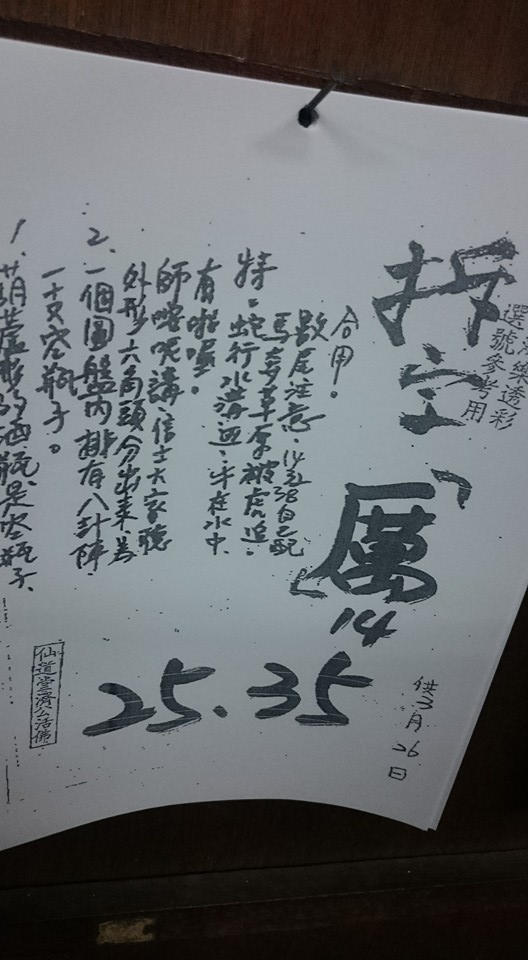 樂透彩
選號參考用
拆字「厲」
14
25.35
供3月26日
合用。
數尾注意、14至38自己配
馬奔草原被虎追.
特:蛇行水溝邊、牛在水中.
有啦喔.
師呢講、信士大家聽
外形六角頭分出來、為
2、一個圓盤內排有八卦陣.
一支空瓶子。
1、葫蘆形的酒瓶是空瓶子、
仙道堂濟公活佛